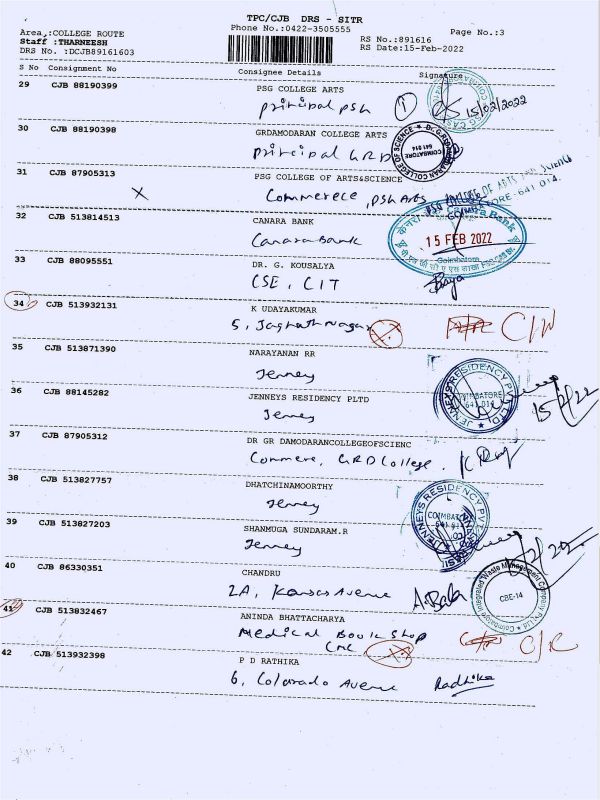 TPC/CJB DRS - SITR
Phone No.:0422-3505555
Page No.:3
Area.:COLLEGE ROUTE
Staff :THARNEESH
DRS No. :DCJB89161603
RS No.:891616
RS Date:15-Feb-2022
S No Consignment No Consignee Details Signature
29 CJB 88190399 PSG COLLEGE ARTS
principal psg 1 15/02/2022
30 CJB 88190398 GRDAMODARAN COLLEGE ARTS
principal GRD
COIMBATORE
641 014
31 CJB 87905313 PSG COLLEGE OF ARTS&SCIENCE
X Commerece, PSG Arts
PSG COLLEGE OF ARTS AND SCIENCE
COIMBATORE-641 014.
32 CJB 513814513 CANARA BANK
Canara Bank
Canara Bank
15 FEB 2022
Coimbatore
33 CJB 88095551 DR. G. KOUSALYA
CSE, CIT
34 CJB 513932131 K UDAYAKUMAR
5, Jagnath Nagar X C/N
35 CJB 513871390 NARAYANAN RR
Jenney
JENNEYS RESIDENCY PVT LTD
COIMBATORE
641 014
15/2/22
36 CJB 88145282 JENNEYS RESIDENCY PLTD
Jenney
37 CJB 87905312 DR GR DAMODARANCOLLEGEOFSCIENC
Commerce, GRD College,
38 CJB 513827757 DHATCHINAMOORTHY
Jenney
JENNEYS RESIDENCY PVT
COIMBATORE
641 014
39 CJB 513827203 SHANMUGA SUNDARAM.R
Jenney
40 CJB 86330351 CHANDRU
2A, Kansas Avenue A.Bala
Coimbatore Integrated Waste Management Company Pvt Ltd
CBE-14
41 CJB 513832467 ANINDA BHATTACHARYA
Medical Book Shop
CMC X C/R
42 CJB 513932398 P D RATHIKA
6, Colorado Avenue Radhika